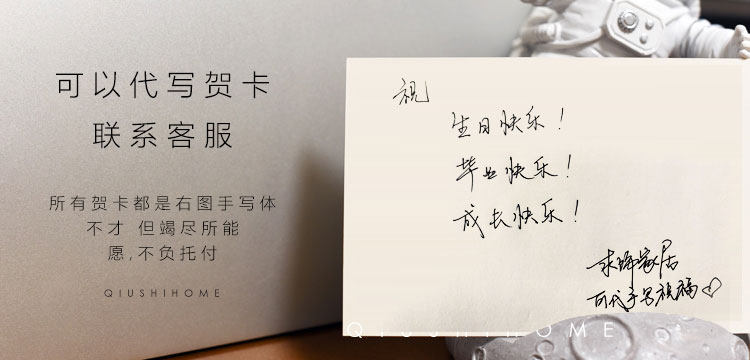 可以代写贺卡
联系客服
所有贺卡都是右图手写体
不才 但竭尽所能
愿,不负托付
QIUSHIHOME
祝
生日快乐!
毕业快乐!
成长快乐!
家居
可代手写祝福♡
QIUSHIHOME